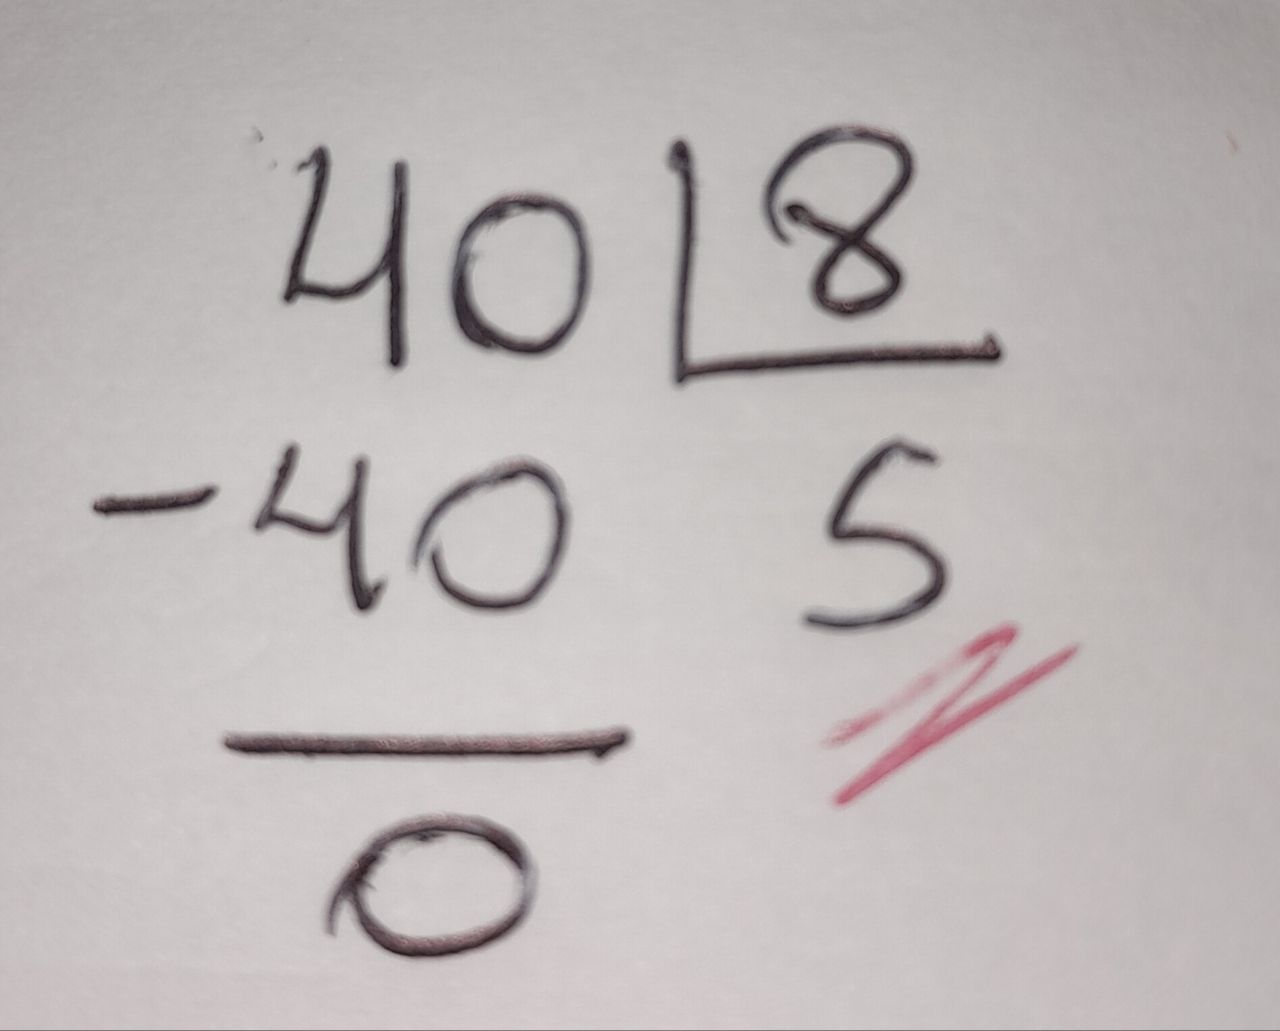 40 8
-40 5
0